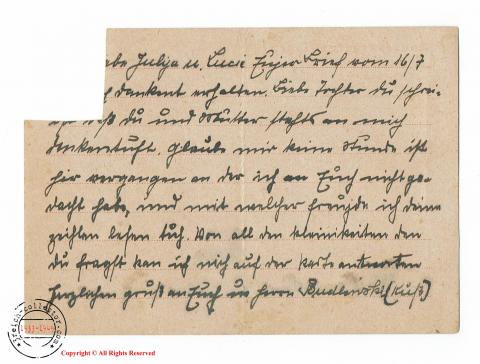 ebe Julija u. Luci Eujer Brief vom 16/7
dankent erhalten. Liebe Tochter du schrei-
daß du und Mutter stehts an mich
denkentuht. Glaube mir keine Stunde ist
her vergangen an der ich an Euch nicht ge-
dacht habe, und mit welcher freujde ich deine
zeihlen lehsen tuh. Von all den kleinikeiten den
du fragst kan ich nich auf der karte antworten
Herzlichen gruß an Euch u Herrn (Kuß)
ireich-collector.com
1933-1945
Copyright © All Rights Reserved